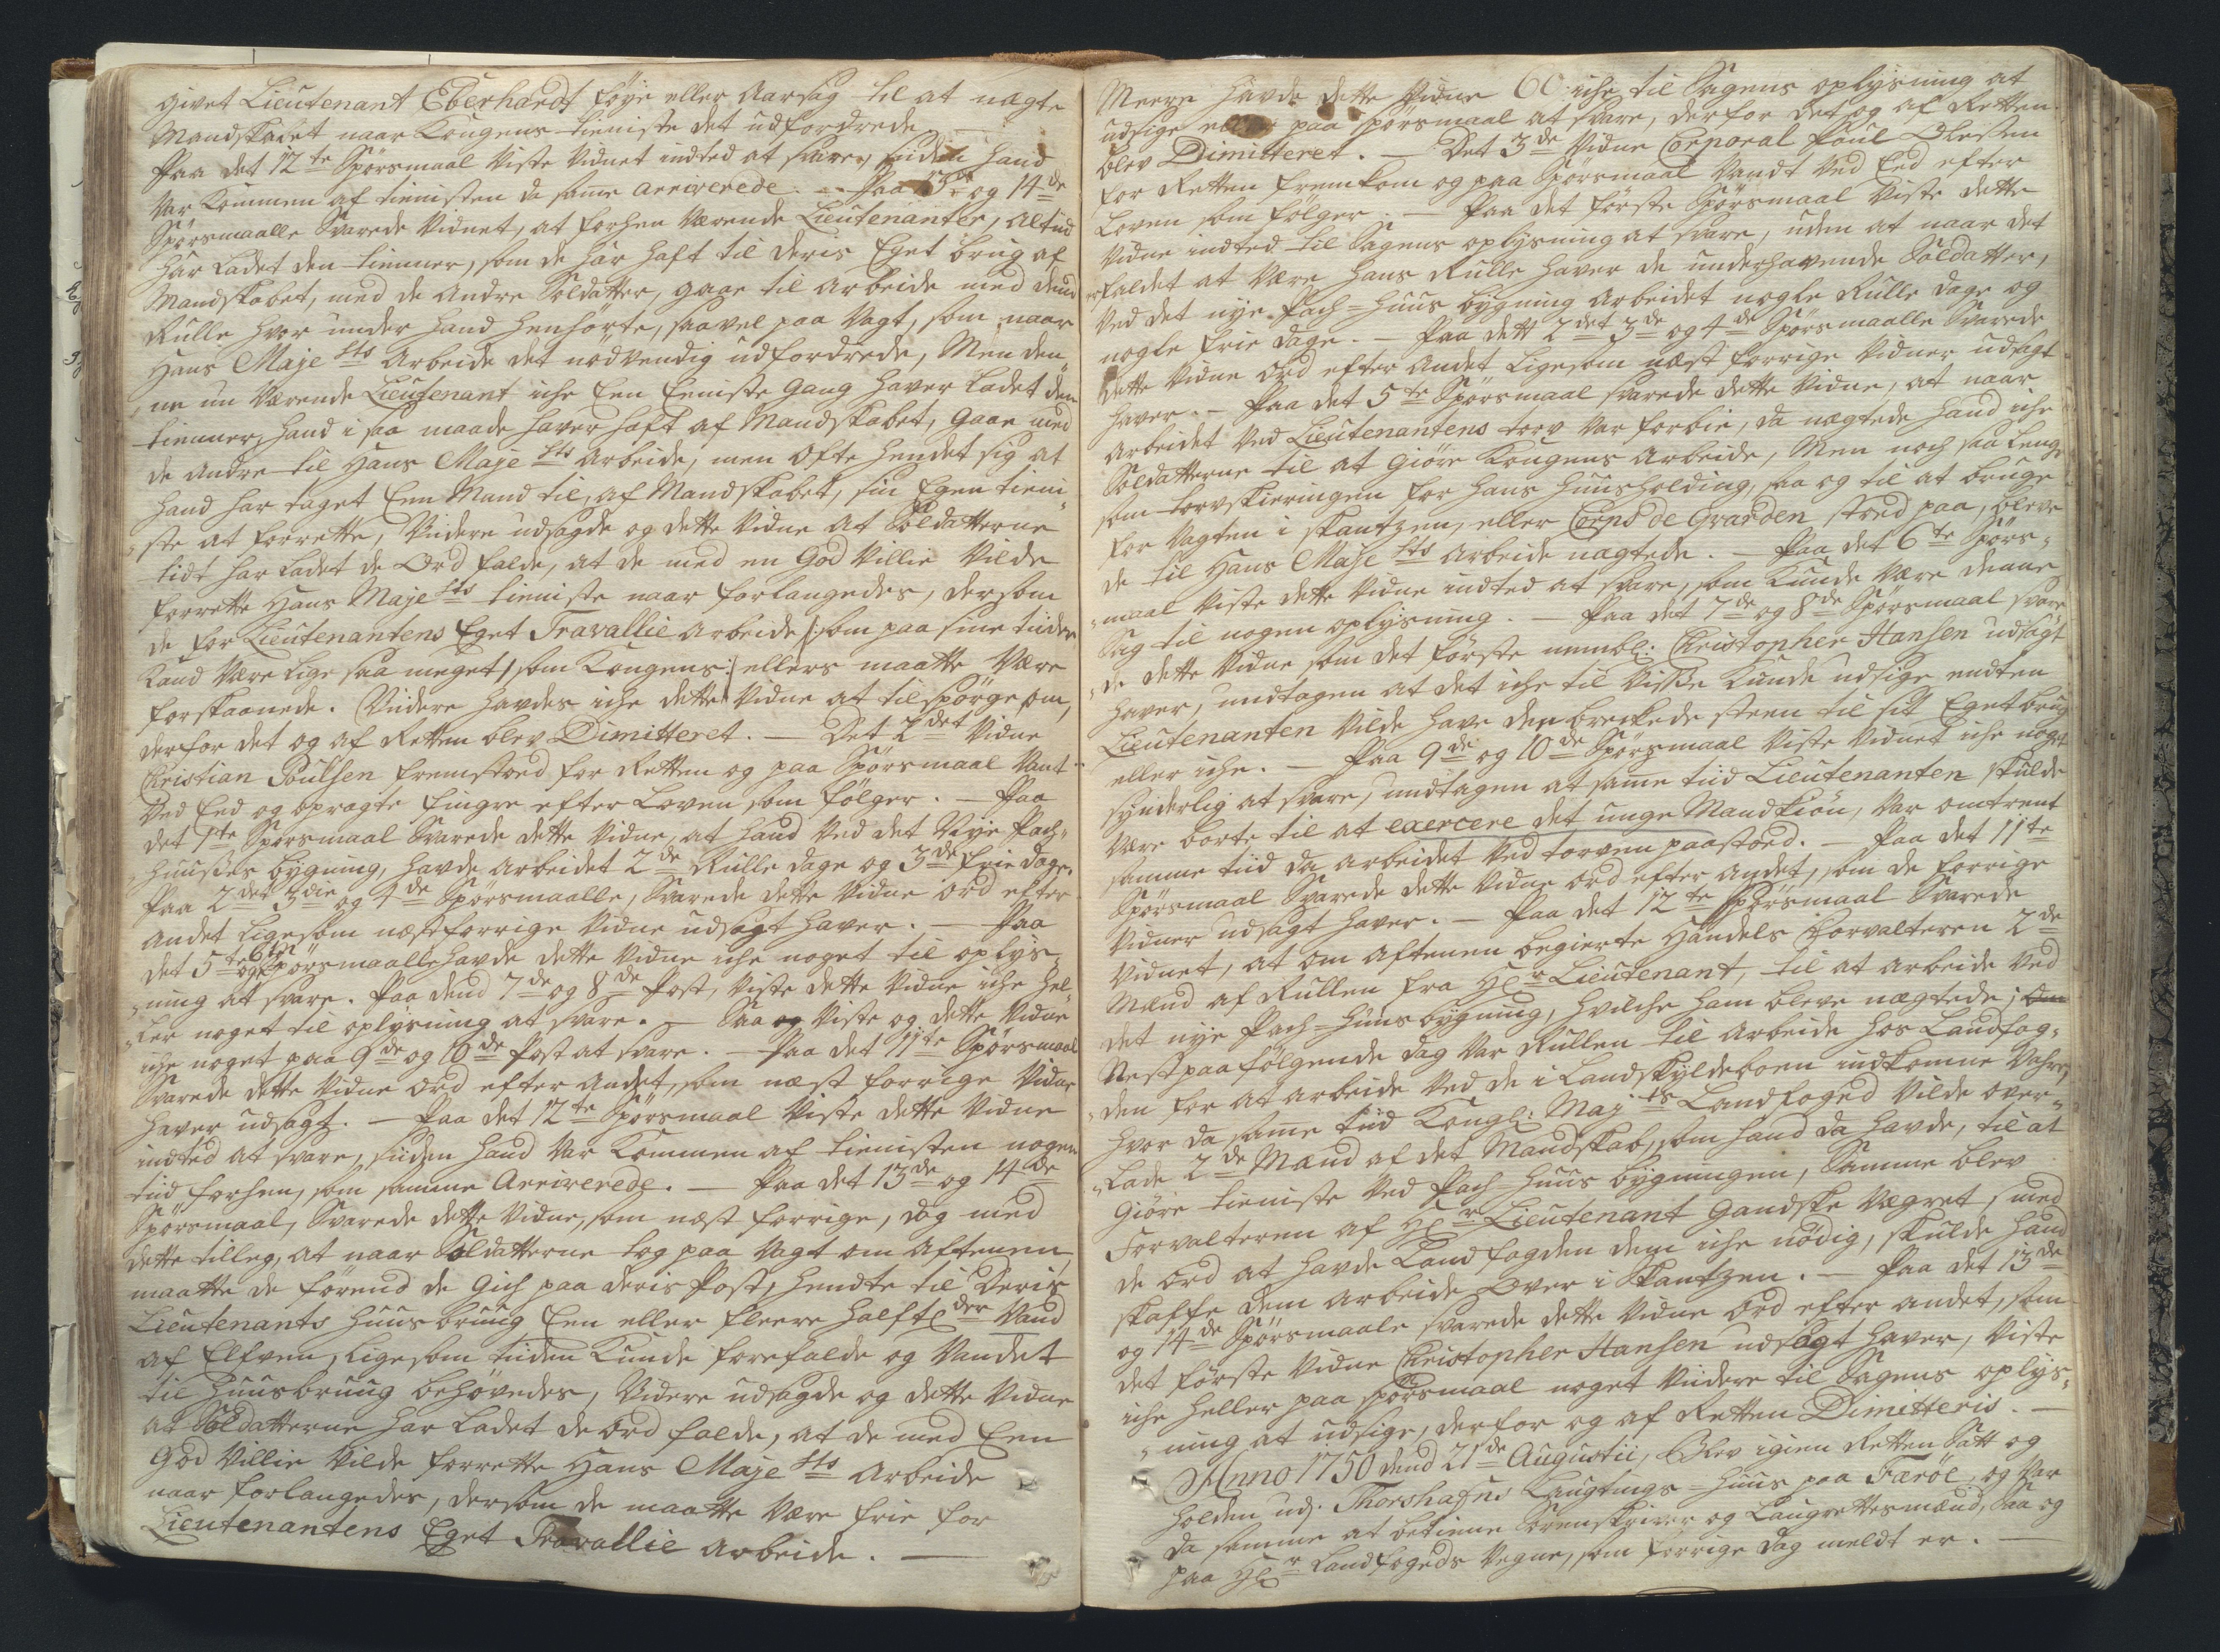 givet Lieutenant Eberhardt föye eller Aarsag til at nægte
Mandskabet naar Kongens tieniste det udfordrede
Paa det 12te Spörsmaal Viste Vidnet indted at svare, siden hand
Var kommen af tienisten da samme arriverede. - Paa 13de og 14de
Spörsmaalle Svarede Vidnet, at forhen Værende Lieutenanter, altiid
har Ladet den tienner, som de har haft til deris Eget brug af
Mandskabet, med de andre Soldatter, gaae til Arbeide med dend
Rulle hvor under hand henhörte, saavel paa Vagt, som naar
Hans Majests Arbeide det nödvendig udfordrede, Men den„
„ne nu Værende Lieutenant iche Een Eeniste gang haver Ladet dem
tienner, hand i saa maade haver haft af Mandskabet, gaae med
de andre til Hans Majests Arbeide, men ofte hendet sig at
hand har taget Een Mand til, af Mandskabet, sin Egen tieni„
„ste at forrette, Videre udsagde og dette Vidne at Soldatterne
tidt har Ladet de Ord falde, at de med en God Villie Vilde
forrette Hans Majests tieniste naar forlangedes, dersom
de for Lieutenantens Eget Travallie arbeide /: som paa sine tiider
kand Være lige saa meget som Kongens :/ ellers maatte Være
forskaanede. Viidere havdes iche dette Vidne at tilspörge om,
derfor det og af Retten blev Dimitteret. - Det 2det Vidne
Christian Poulsen fremstoed for Retten og paa Spörsmaal Vant
Ved Eed og opragte fingre efter Loven som fölger. - Paa
det 1ste Spörsmaal Svarede dette Vidne, at hand Ved det Nye Pach„
„huuses bygning, havde arbeidet 2de Rulle dage og 3de frie dage.
Paa 2det 3die og 4de Spörsmaalle, Svarede dette Vidne ord efter
andet ligesom næstforrige Vidne udsagt haver. - Paa
det 5te og 6te Spörsmaalle havde dette Vidne iche noget til oplys„
„ning at svare. Paa dend 7de og 8de Post, Viste dette Vidne iche hel„
„ler noget til oplysning at svare. - Saa og Viste og dette Vidne
iche noget paa 9de og 10de Post at svare. - Paa det 11te Spörsmaal
Svarede dette Vidne Ord efter andet, som næst forrige Vidne
haver udsagt. - Paa det 12te Spörsmaal Viste dette Vidne
indted at svare, siiden hand Var kommen af tienisten nogen
tiid forhen, som samme Arriverede. - Paa det 13de og 14de
Spörsmaal, Svarede dette Vidne, som næst forrige, dog med
dette tilleg, at naar Soldatterne tog paa Vagt om Aftenen,
maatte de förend de gich paa deris Post, hendte til Deris
Lieutenants huusbruug Een eller fleere halftder Vand
af Elfven, ligesom tiiden kunde forefalde og Vandet
til huusbruug behövedes, Videre udsagde og dette Vidne
at Soldatterne har Ladet de ord falde, at de med Een
God Villie Vilde forrette Hans Majests Arbeide
naar forlangedes, dersom de maatte Være frie for
Lieutenantens Eget Travallie arbeide. -
Meere havde dette Vidne 60 iche til Sagens oplysning at
udsige eller paa Spörsmaal at svare, derfor det og af Retten
blev Dimitteret. - Det 3de Vidne Corporal Poul Olesen
for Retten fremkom og paa Spörsmaal Vandt Ved Eed efter
Loven som fölger. - Paa det förste Spörsmaal Viste dette
Vidne indted til Sagens oplysning at svare, uden at naar det
er faldet at Være hans Rulle haver de underhavende Soldatter,
Ved det nye Pach-huus bygning Arbeidet nogle Rulle dage og
nogle frie dage. - Paa dett 2det 3de og 4de Spörsmaalle Svarede
dette Vidne ord efter andet ligesom næst forrige Vidner udsagt
haver. - Paa det 5te Spörsmaal Svarede dette Vidne, at naar
Arbeidet Ved Lieutenantens torv Var forbie, da nægtede hand iche
Soldatterne til at giöre Kongens Arbeide, Men noch saa lenge
som torvskieringen for hans huusholding, saa og til at bruge
for Vagten i skantzen, eller Corps de Grarden stoed paa, bleve
de til Hans Majests Arbeide nægtede. - Paa det 6te Spörs„
„maal Viste dette Vidne indted at svare, som kunde Være denne
Sag til nogen oplysning. - Paa det 7de og 8de Spörsmaal svare„
„de dette Vidne, som det förste nembl: Christopher Hansen udsagt
haver, undtagen at det iche til Visse kunde udsige endten
Lieutenanten Vilde have den brechede steen til sit Eget brug
eller iche. - Paa 9de og 10de Spörsmaal Viste Vidnet iche noget
synderlig at svare, undtagen at samme tiid Lieutenanten skulde
Være borte til at exercere det unge Mandkiön, Var omtrent
samme tiid da arbeidet Ved torven paastoed. - Paa det 11te
Spörsmaal Svarede dette Vidne ord efter andet, som de forrige
Vidner udsagt haver. - Paa det 12te Spörsmaal Svarede
Vidnet, at om Aftenen begierte Handels Forvalteren 2de
Mænd af Rullen fra Hr Lieutenant, til at arbeide Ved
det nye Pach-huus bygning, hvilche ham bleve nægtede;
Nestpaafölgende dag Var Rullen til Arbeide hos Landfog„
„den for at arbeide Ved de i Landskyldeboen indkomne Vahre,
hvor da samme tiid Kongl: Mayts Landfoged Vilde over„
„lade 2de Mænd af det Mandskab, som hand da havde, til at
giöre tieniste Ved Pach-huus bygningen, Samme blev
Forvalteren af Hr Lieutenant gandske Vægret, med
de Ord at havde Landfogden dem iche nödig, skulde hand
skaffe dem arbeide Over i Skantzen. - Paa det 13de
og 14de Spörsmaale svarede dette Vidne Ord efter andet, som
det förste Vidne Christopher Hansen udsagt haver, Viste
iche heller paa spörsmaal noget Viidere til Sagens oplys„
„ning at udsige, derfor og af Retten Dimitteris. -
Anno 1750 dend 21de Augustii, Blev igien Retten Satt og
holden udj Thorshafns Laugtings-huus paa Færöe, og Var
da samme at betiene Sorenskriver og Laugrettesmænd, Saa og
paa Hr Landfogeds Vegne, som forrige dag meldt er. -